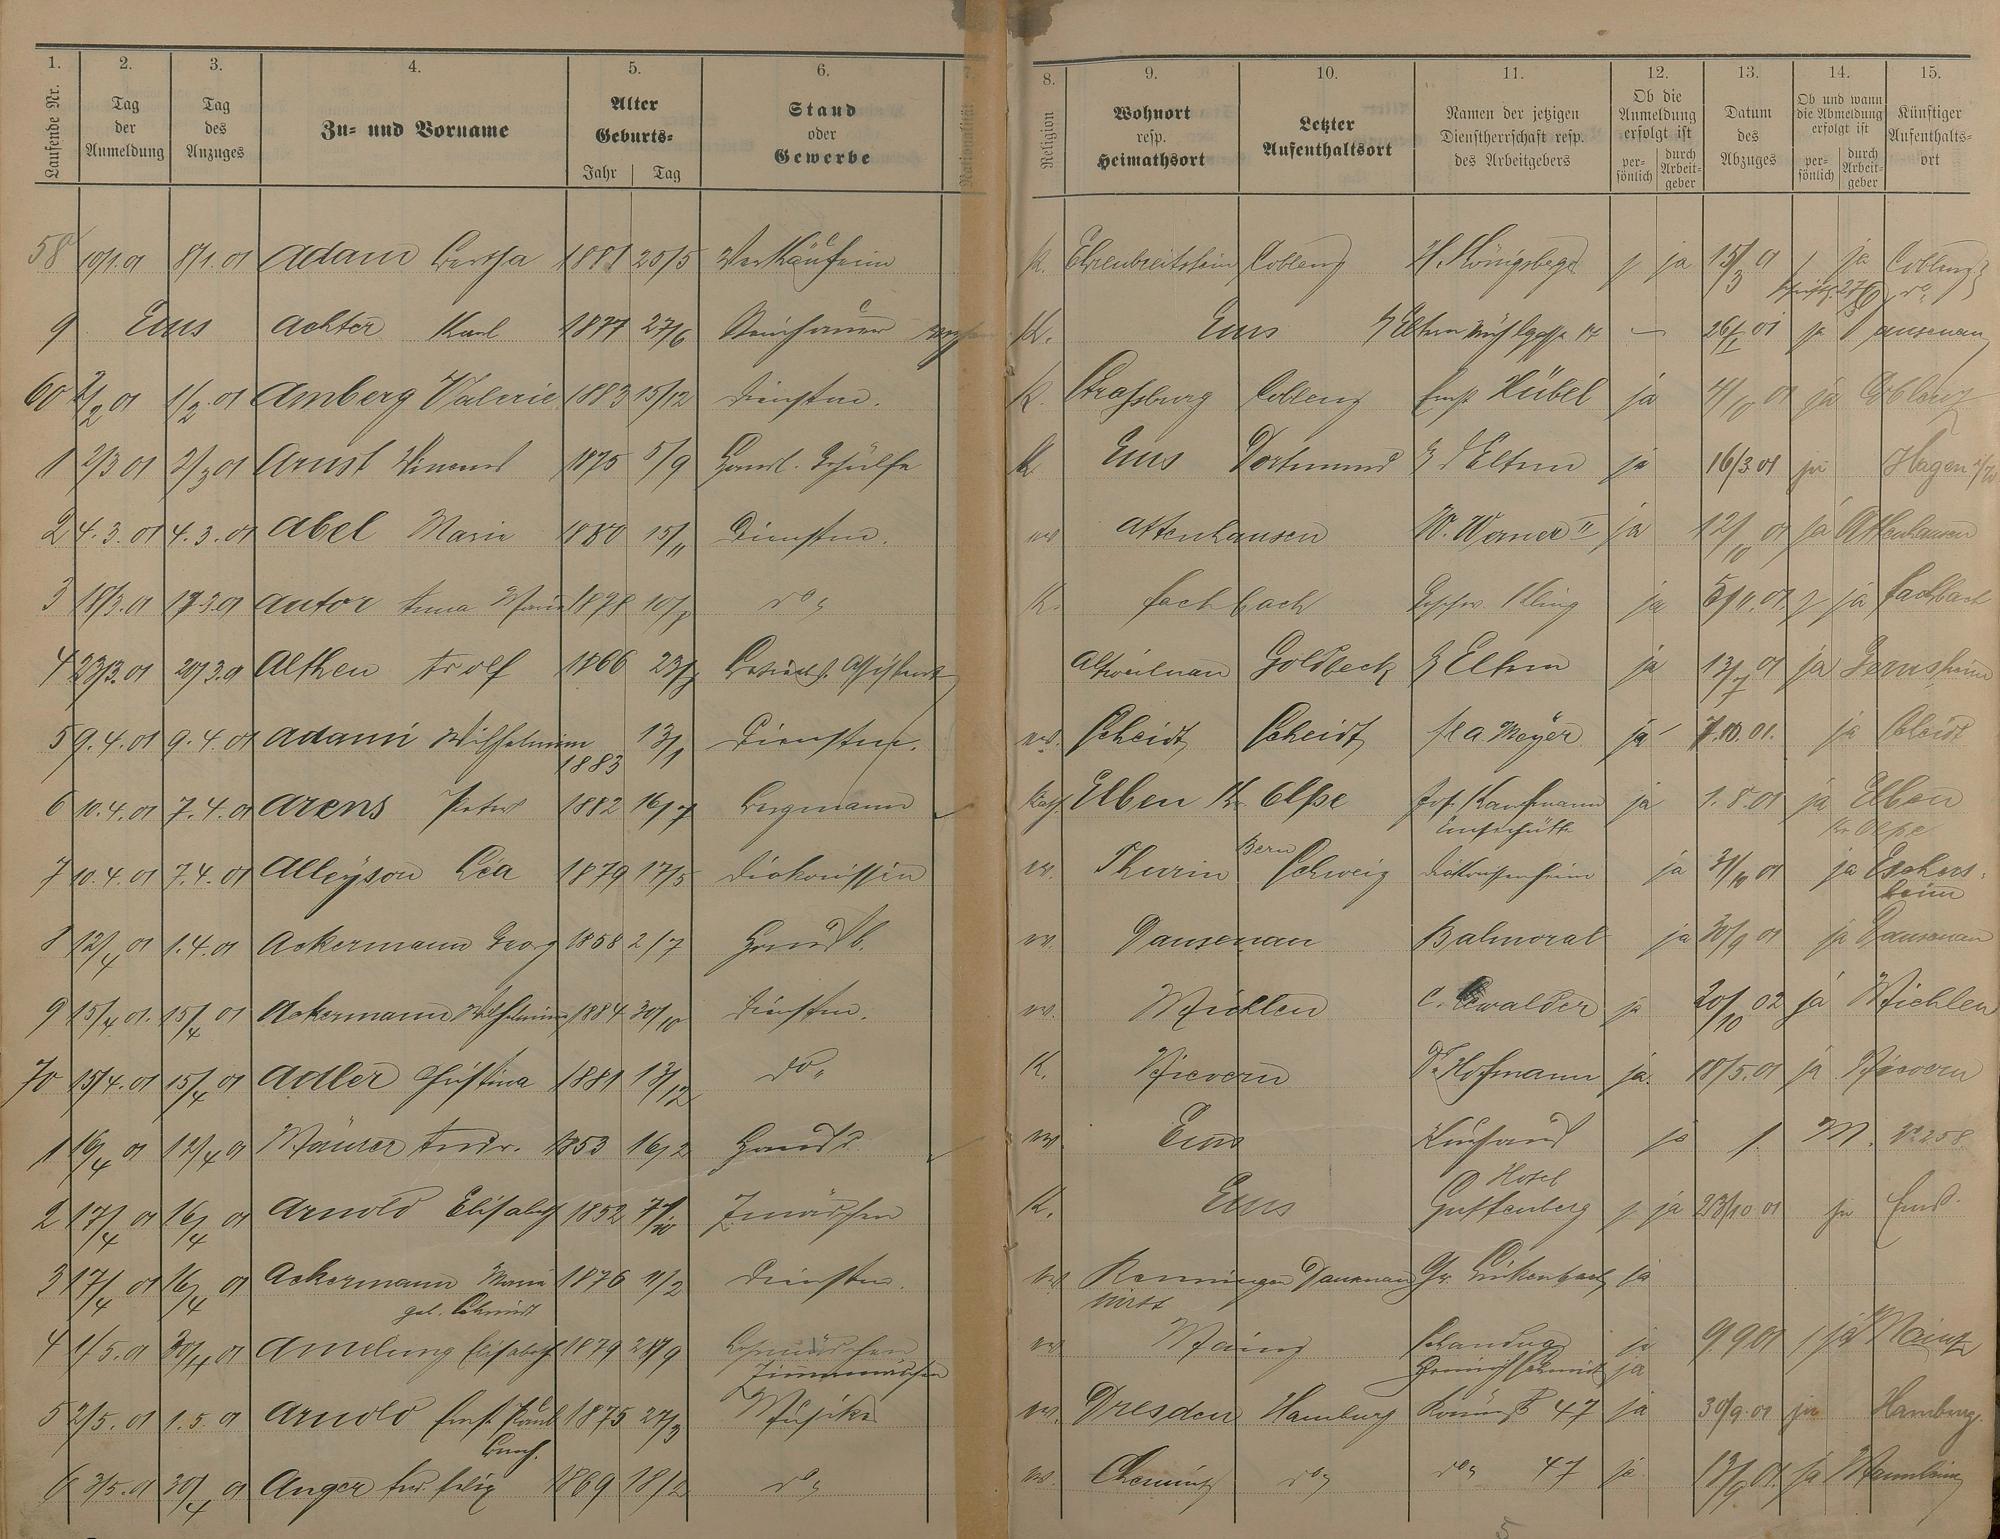 1. 2. 3. 4. 5. 6. 7. 8. 9. 10. 11. 12. 13. 14. 15.
Laufende Nr. Tag der Anmeldung Tag des Anzuges Zu- und Vorname Alter Geburts- Jahr Tag Stand oder Gewerbe Nationalität Religion Wohnort resp. Heimathsort Letzter Aufenthaltsort Namen der jetzigen Dienstherrschaft resp. des Arbeitgebers Ob die Anmeldung erfolgt ist per- sönlich durch Arbeit- geber Datum des Abzuges Ob und wann die Abmeldung erfolgt ist per- sönlich durch Arbeit- geber Künftiger Aufenthalts- ort
58 10/1.01 8/1.01 Adam Bertha 1881 25/5 Verkäuferin K. Ehrenbreitstein Coblenz H. Königsberger ja 15/3 01 ja Coblenz
9 Ems Achter Karl 1877 27/6 K. Ems Eltern 26/I 01 ja Dausenau
60 2/2 01 1/2.01 Amberg Valerie 1883 15/12 Dienstm. K. Strassburg Coblenz Ernst Hübel ja 4/10 01 ja Coblenz
1 2/3 01 2/3 01 Arnst 1875 5/9 Handl. Gehülfe K. Ems Dortmund z d Eltern ja 16/3 01 ja Hagen
2 4.3.01 4.3.01 Abel Marie 1880 15/11 Dienstm. ev Attenhausen W. Werner II ja 12/10 01 ja Attenhausen
3 18/3.01 17.3.01 Autor Anna Maria 1878 do K. Fachbach Geschw. Kling ja 5/11.01 ja Fachbach
4 23/3.01 20/3.01 Althen Adolf 1866 Assistent Altweilnau Goldbeck z Eltern ja 13/7 01 ja Gernsheim
5 9.4.01 9.4.01 Adami Wilhelmine 1883 13/1 Dienstm. ev. Scheidt Scheidt Meyer ja 7.10.01. ja Scheidt
6 10.4.01 7.4.01 Arens Peter 1882 16/7 Bergmann Kath. Elben Kr. Olpe Jos. Kaufmann Emserhütte ja 1.8.01 ja Elben Kr Olpe
7 10.4.01 7.4.01 Alleyson Léa 1879 17/5 Diakonissin ev. Thurin Bern Schweiz Diakonissenheim ja 31/10 01 ja Eschersheim
8 12/4 01 1.4.01 Ackermann Georg 1858 2/7 Hausb. ev. Dausenau Balmoral ja 30/9 01 ja Dausenau
9 15/4 01. 15/4 01 Ackermann Wilhelmine 1884 30/10 Dienstm. ev. Miehlen ja 20/10 02 ja Miehlen
70 15/4.01 15/4 01 Adler Christina 1881 13/12 do K. Nievern Dr Hofmann ja. 18/5.01 ja Nievern
1 16/4 01 12/4 01 Mäurer Andr. 1853 16/2 Hausb. ev. Ems Kurhaus ja M. No 258
2 17/4 01 16/4 01 Arnold Elisabeth 1852 Z. mädchen K. Ems Hotel Guttenberg ja 23/10 01 ja Ems
3 17/4 01 16/4 01 Ackermann Maria geb. Schmidt 1876 11/2 Dienstm. ev Dausenau ja
4 1/5.01 30/4 01 Amelung Elisabeth 1879 Zimmermädchen ev Mainz Heinrich Schmidt ja ja 9 9 01 ja Mainz
5 2/5.01 1.5.01 Arnold Ernst Paul 1875 27/3 Musiker ev. Dresden Hamburg 47 ja 30/9.01 ja Hamburg
6 3/5.01 30/4 01 Anger Felix 1869 18/2 do ev. Chemnitz do do 47 ja 13/9 01. ja Mannheim